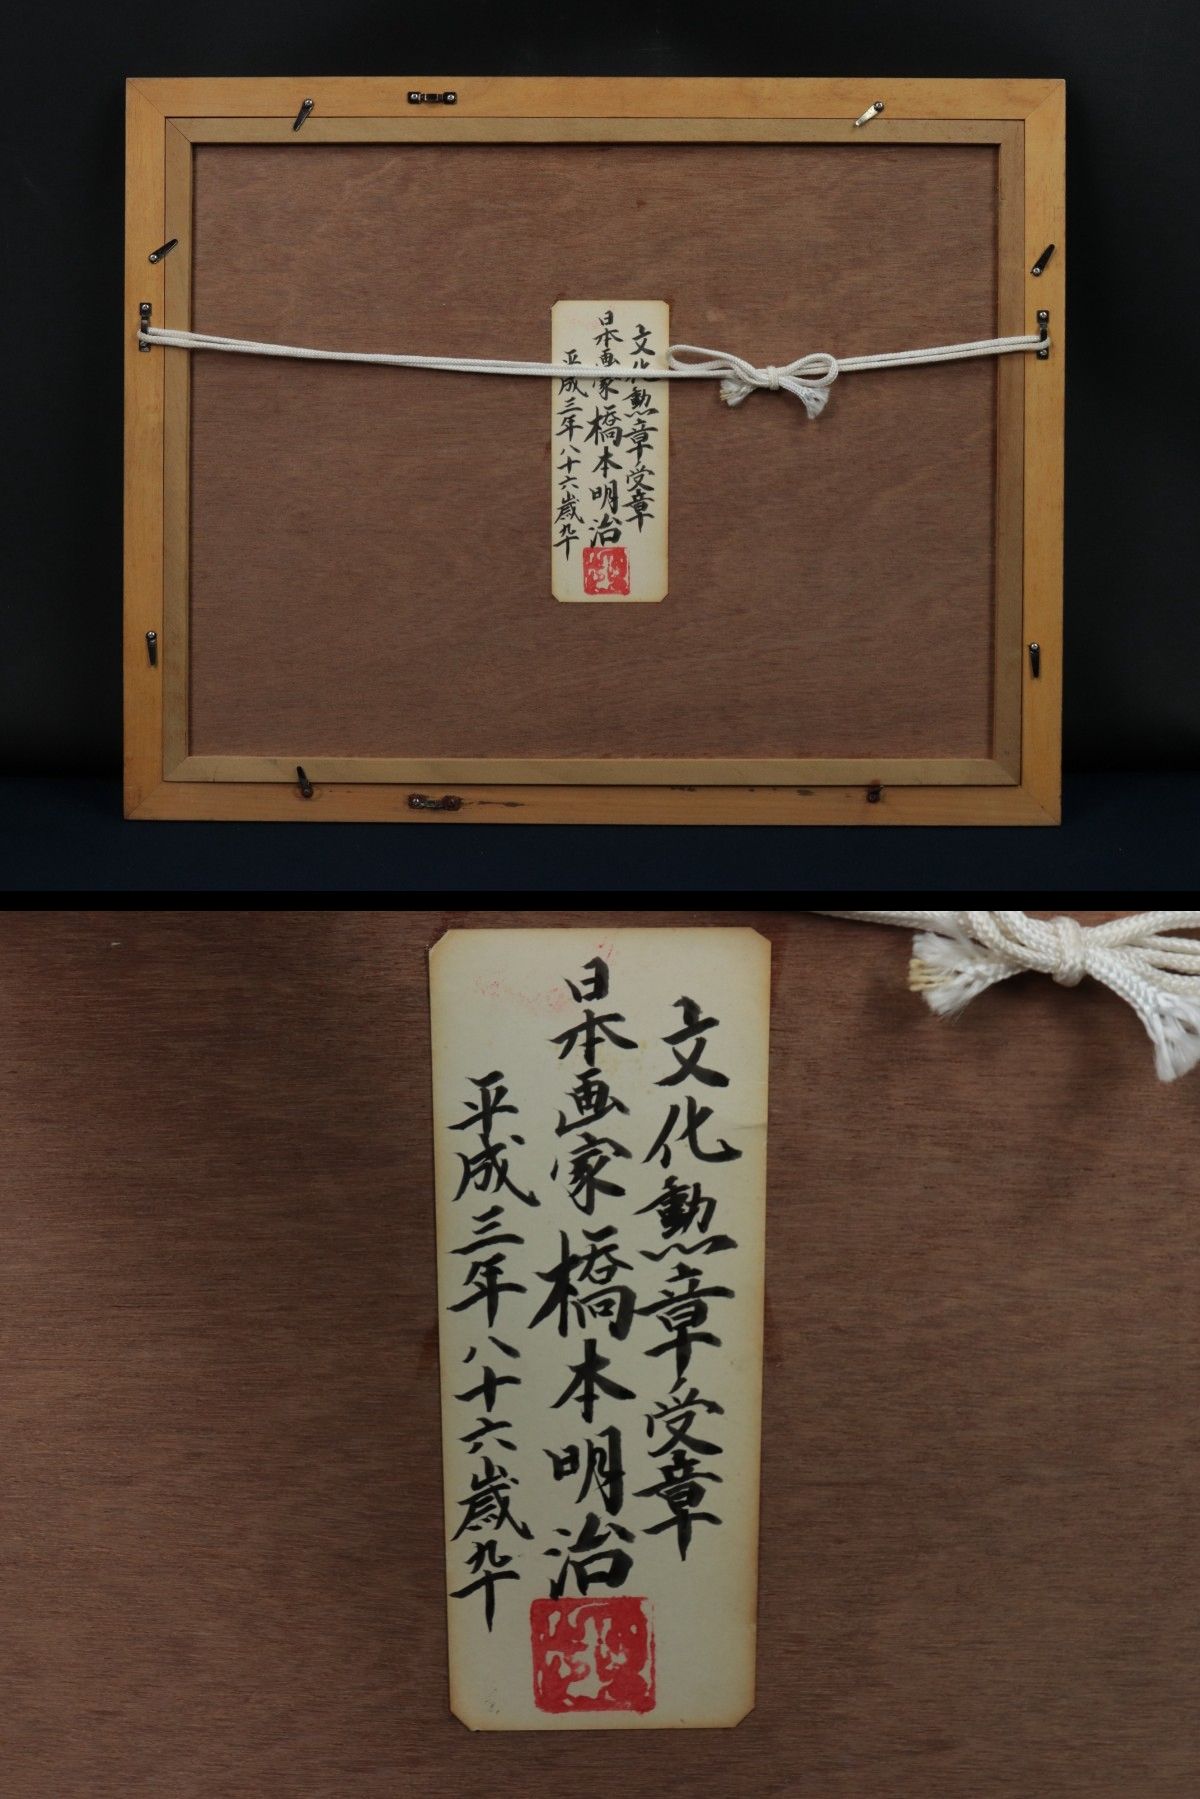 文化勲章受章
日本画家 橋本明治
平成三年八十六歳卆
文化勲章受章
日本画家 橋本明治
平成三年八十六歳卆